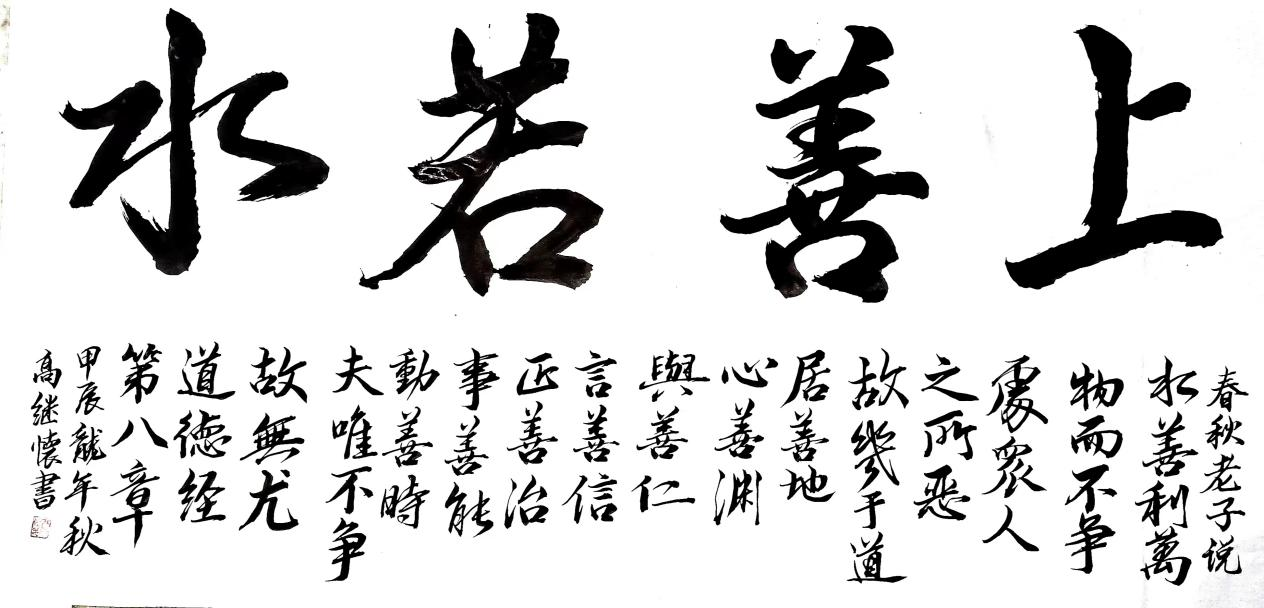 上善若水
春秋老子说
水善利萬
物而不争
處衆人
之所恶
故幾于道
居善地
心善渊
與善仁
言善信
正善治
事善能
動善時
夫唯不争
故無尤
道德经
第八章
甲辰龍年秋
高继懷書